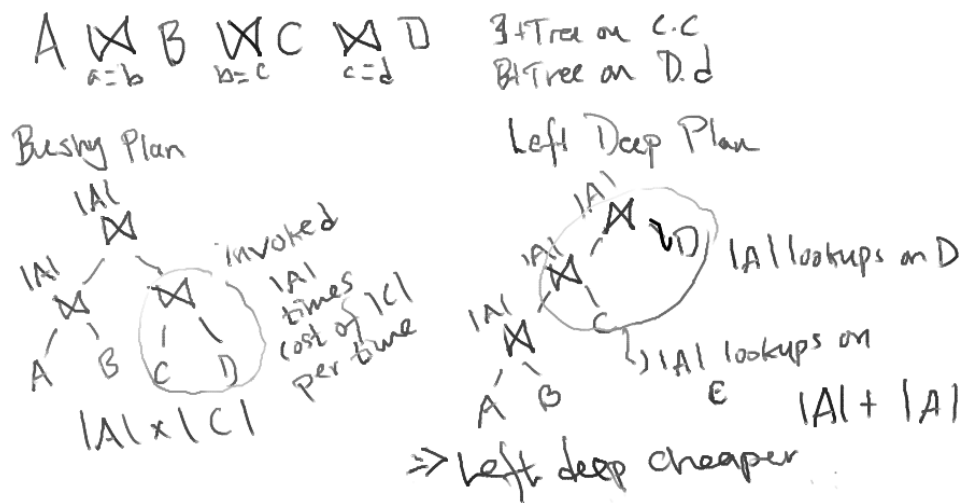 A ⋈ B ⋈ C ⋈ D
a=b b=c c=d
B+Tree on C.C
B+Tree on D.d
Bushy Plan
|A|
⋈
|A|
⋈ ⋈
A B C D
invoked
|A|
times
cost of |C|
per time
|A| x |C|
Left Deep Plan
|A|
⋈
D
|A|
⋈
C
|A|
⋈
A B
|A| lookups on D
|A| lookups on
C
|A| + |A|
=> Left deep cheaper